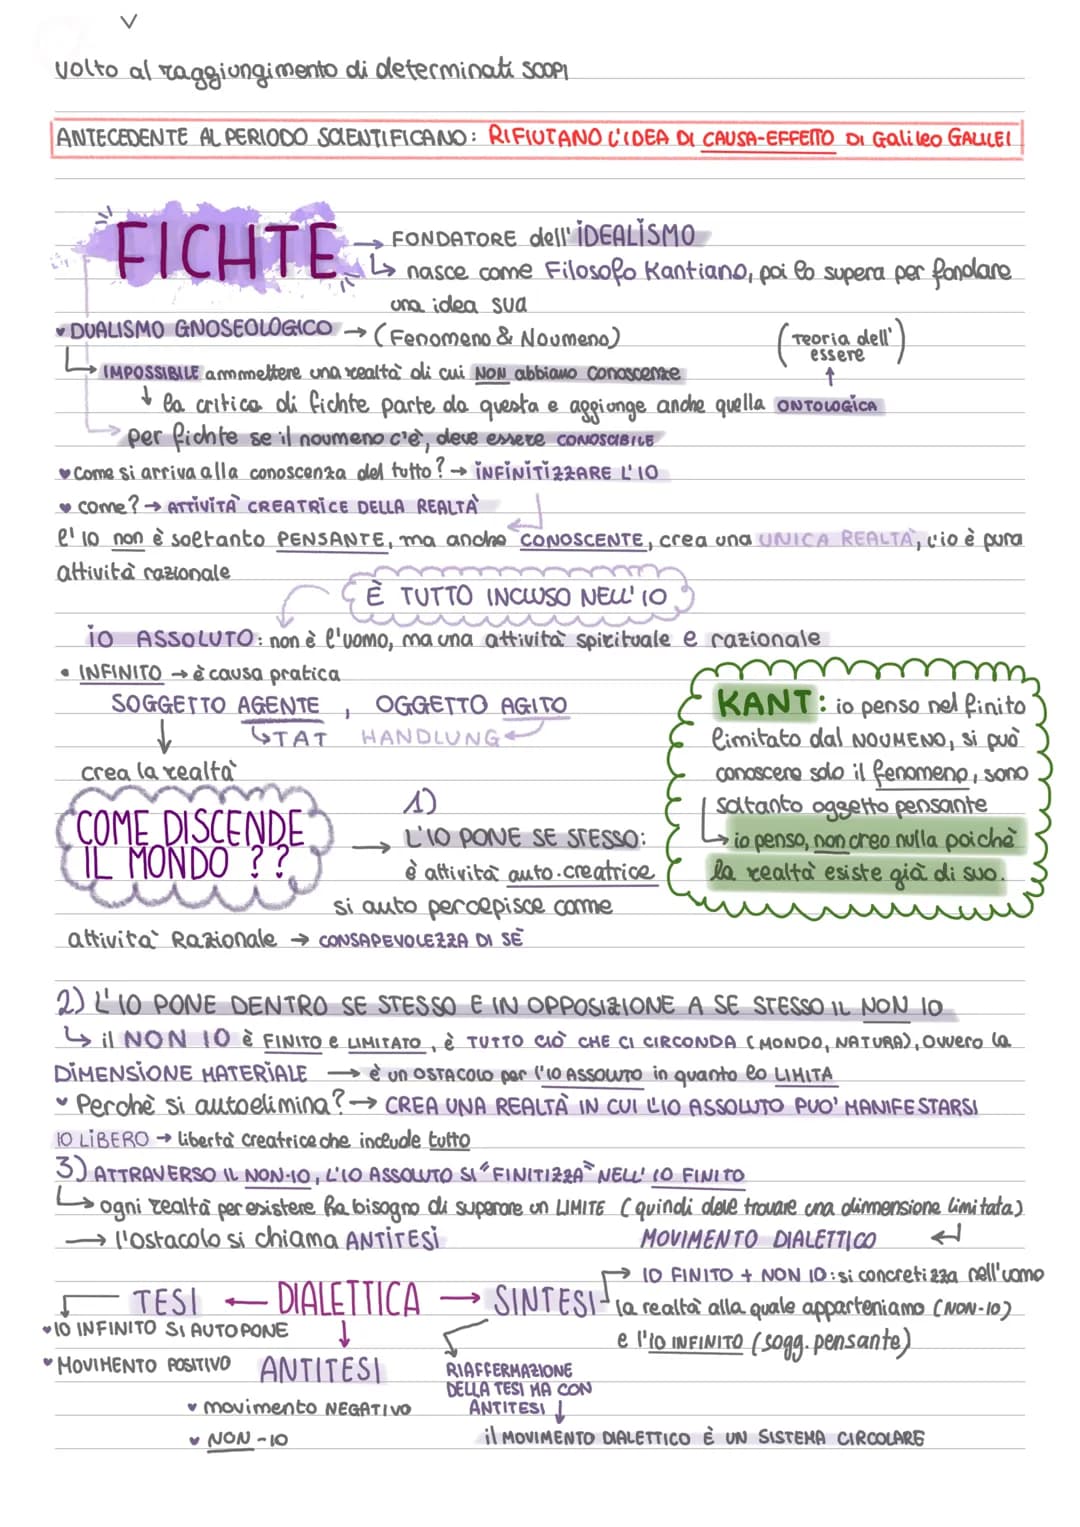 volto al raggiungimento di determinati SCOPI
ANTECEDENTE AL PERIODO SCIENTIFICANO: RIFIUTANO L'IDEA DI CAUSA-EFFETTO DI Galileo GALILEI
FICHTE → FONDATORE dell'IDEALISMO
↳ nasce come Filosofo Kantiano, poi lo supera per fondare
una idea sua
♥ DUALISMO GNOSEOLOGICO → (Fenomeno & Noumeno)
(Teoria dell'
essere)
↳ IMPOSSIBILE ammettere una realtà di cui NON abbiamo conoscenze
↓ la critica di fichte parte da questa e aggiunge anche quella ONTOLOGICA
→ per fichte se il noumeno c'è, deve essere CONOSCIBILE
♥ Come si arriva alla conoscenza del tutto? → INFINITIZZARE L'IO
♥ come? → ATTIVITÀ CREATRICE DELLA REALTÀ
l'IO non è soltanto PENSANTE, ma anche CONOSCENTE, crea una UNICA REALTÀ, l'io è pura
attività razionale
È TUTTO INCLUSO NELL'IO
IO ASSOLUTO: non è l'uomo, ma una attività spirituale e razionale
• INFINITO → è causa pratica
SOGGETTO AGENTE, OGGETTO AGITO
↳ TAT HANDLUNG ↵
↓
crea la realtà
KANT: io penso nel finito
limitato dal NOUMENO, si può
conoscere solo il fenomeno, sono
soltanto oggetto pensante
↳ io penso, non creo nulla poichè
la realtà esiste già di suo.
COME DISCENDE
IL MONDO ??
→ 1)
L'IO PONE SE STESSO:
è attività auto-creatrice
si auto percepisce come
attività Razionale → CONSAPEVOLEZZA DI SÈ
2) L'IO PONE DENTRO SE STESSO E IN OPPOSIZIONE A SE STESSO IL NON IO
↳ il NON IO è FINITO e LIMITATO, è TUTTO CIÒ CHE CI CIRCONDA (MONDO, NATURA), Ovvero la
DIMENSIONE MATERIALE → è un OSTACOLO per l'IO ASSOLUTO in quanto lo LIMITA
♥ Perchè si autoelimina? → CREA UNA REALTÀ IN CUI L'IO ASSOLUTO PUO' MANIFESTARSI
IO LIBERO → libertà creatrice che include tutto
3) ATTRAVERSO IL NON-IO, L'IO ASSOLUTO SI "FINITIZZA" NELL'IO FINITO
↳ ogni realtà per esistere ha bisogno di superare un LIMITE (quindi deve trovare una dimensione limitata)
→ l'ostacolo si chiama ANTITESI
MOVIMENTO DIALETTICO ↵
TESI ← DIALETTICA → SINTESI
→ IO FINITO + NON IO: si concretizza nell'uomo
la realtà alla quale apparteniamo (NON-IO)
e l'IO INFINITO (sogg. pensante)
♥ IO INFINITO SI AUTOPONE
♥ MOVIMENTO POSITIVO
↓
ANTITESI
♥ movimento NEGATIVO
♥ NON-IO
RIAFFERMAZIONE
DELLA TESI MA CON
ANTITESI ↓
il MOVIMENTO DIALETTICO È UN SISTEMA CIRCOLARE